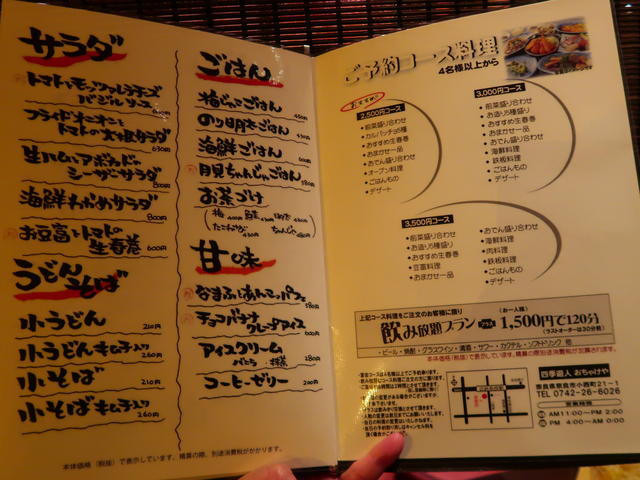 サラダ
トマトとモッツァレラチーズ
バジルソース 600円
フライドオニオンと
トマトの大根サラダ
630円
生ハムとアボカドの
シーザーサラダ
800円
海鮮わかめサラダ
800円
お豆富とトマトの
生春巻 600円
うどん
そば
小うどん 210円
小うどんキムチ入り 260円
小そば 210円
小そばキムチ入り 260円
ごはん
梅じゃこごはん 450円
のり明太ごはん 430円
海鮮ごはん 600円
月見ちゃんじゃごはん 580円
お茶づけ
甘味
なまふ、あんこパフェ 580円
チョコバナナ
クレープアイス 600円
アイスクリーム
バニラ 抹茶 280円
コーヒーゼリー 200円
本体価格(税抜)で表示しています。精算の際、別途消費税がかかります。
ご予約コース料理
4名様以上から
おすすめ!
2,500円コース
•前菜盛り合わせ
•カルパッチョ5種
•おすすめ生春巻
•おまかせ一品
•おでん盛り合わせ
•オーブン料理
•ごはんもの
•デザート
3,000円コース
•前菜盛り合わせ
•お造り5種盛り
•おすすめ生春巻
•おまかせ一品
•おでん盛り合わせ
•海鮮料理
•鉄板料理
•ごはんもの
•デザート
3,500円コース
•前菜盛り合わせ
•お造り5種盛り
•おすすめ生春巻
•豆富料理
•おまかせ一品
•おでん盛り合わせ
•海鮮料理
•肉料理
•鉄板料理
•ごはんもの
•デザート
上記コース料理をご注文のお客様に限り
飲み放題プラン プラス (お一人様) 1,500円で120分
(ラストオーダーは30分前)
・ビール・焼酎・グラスワイン・清酒・サワー・カクテル・ソフトドリンク 他
本体価格(税抜)で表示しています。精算の際別途消費税が加算されます。
四季遊人 おちゃけや
奈良県奈良市小西町21-1
TEL 0742-26-6026
営業時間
AM11:00~PM 2:00
PM 4:00~AM 0:00